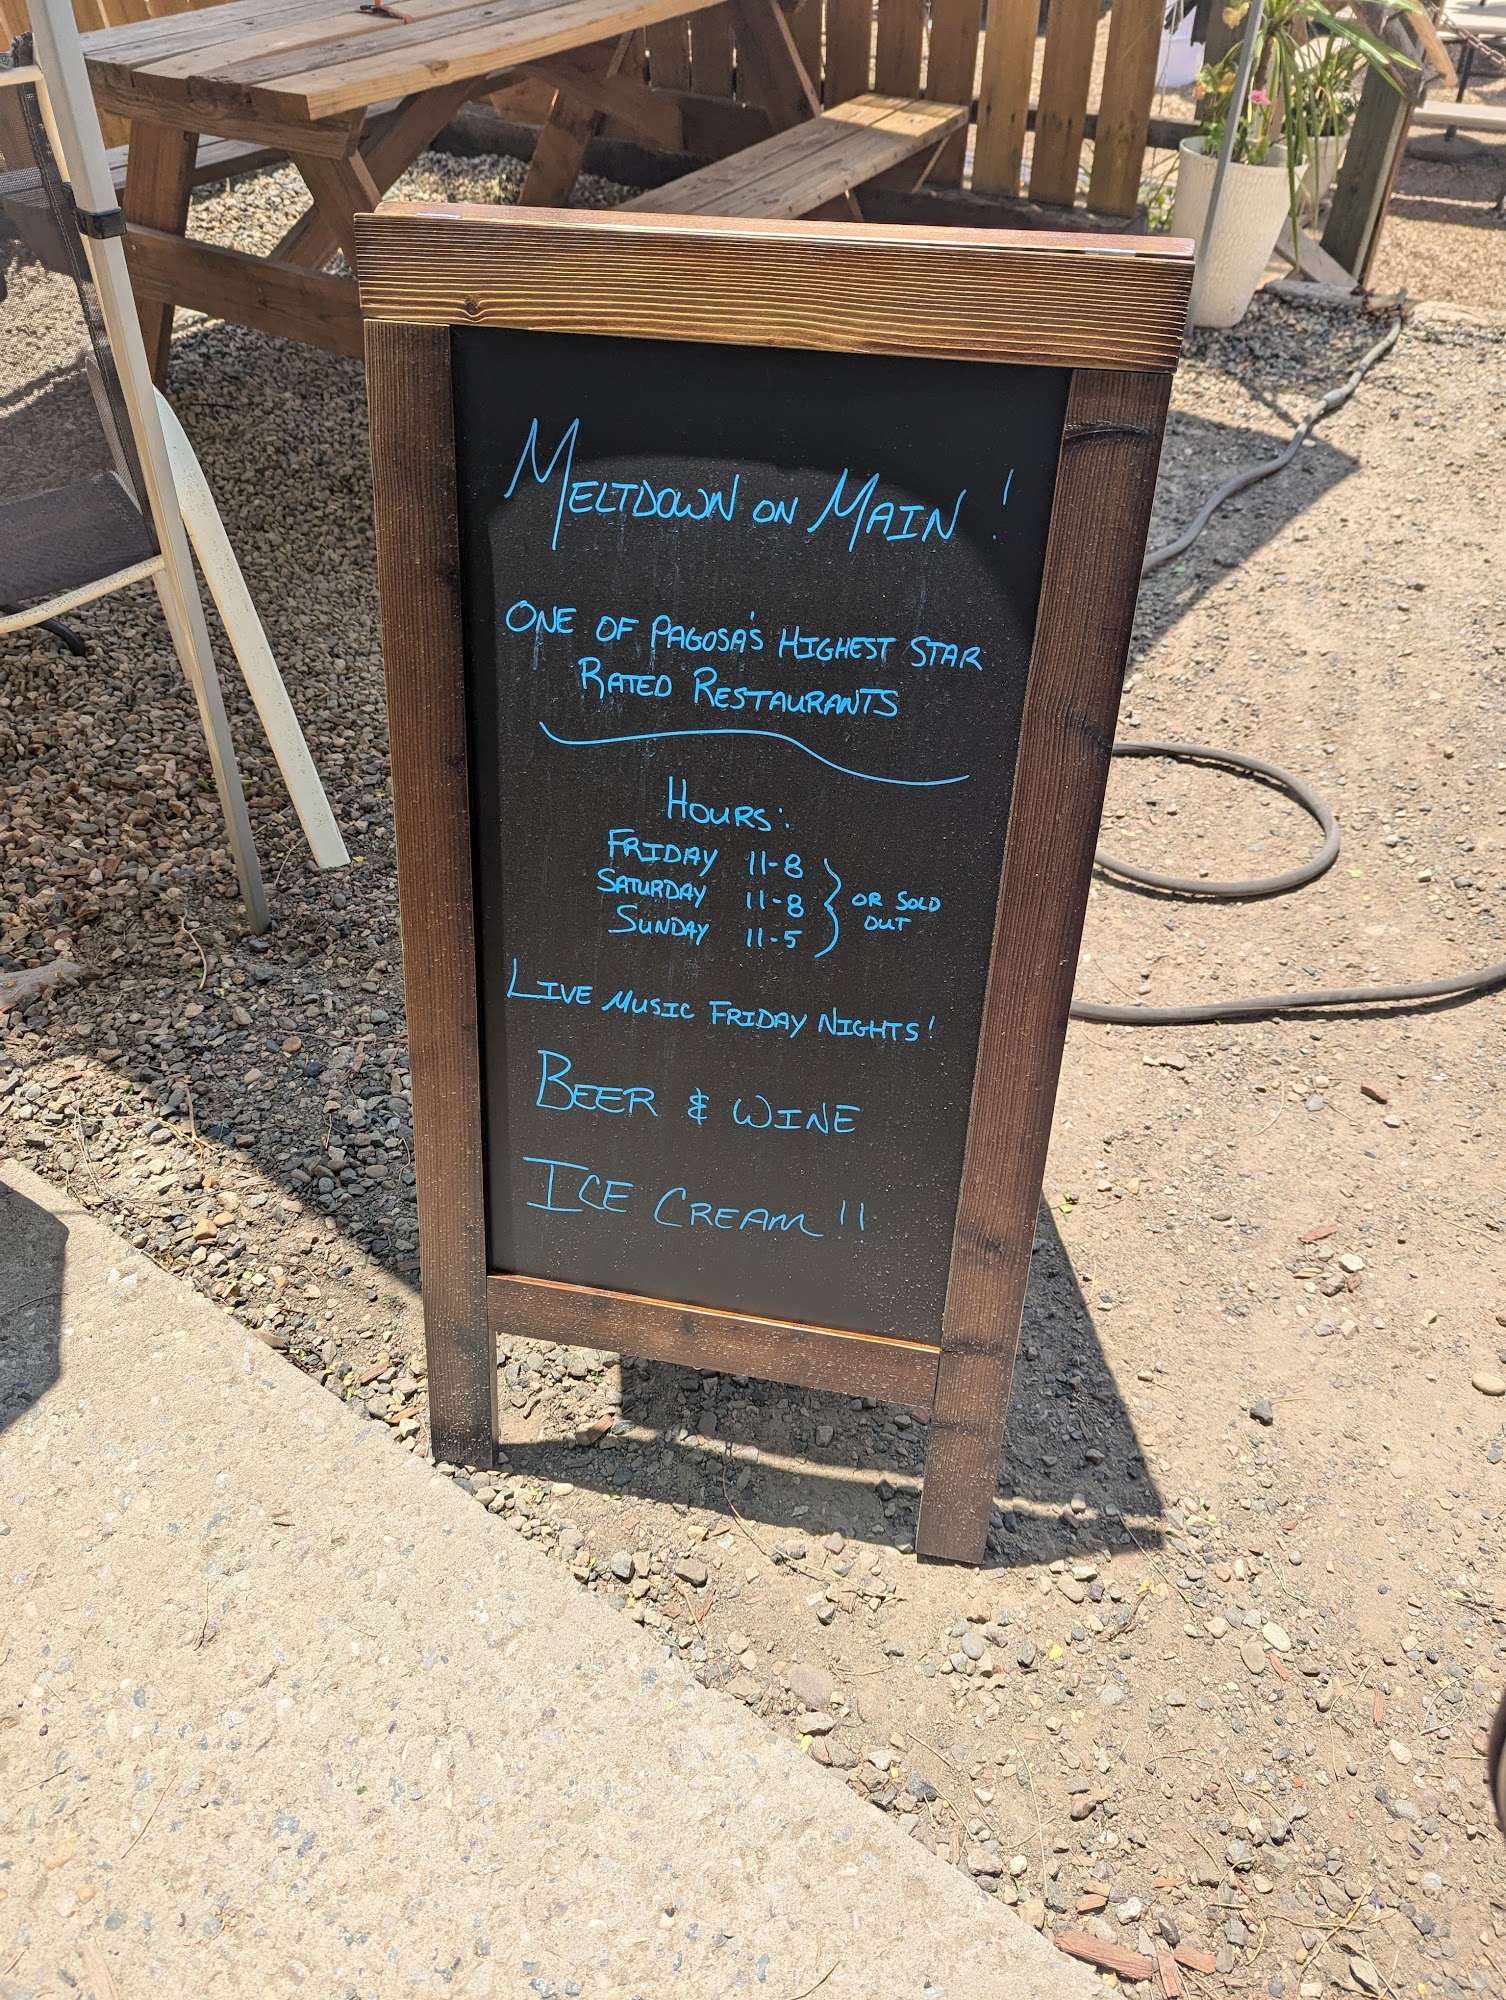 MELTDOWN ON MAIN!
ONE OF PAGOSA'S HIGHEST STAR
RATED RESTAURANTS
HOURS:
FRIDAY 11-8
SATURDAY 11-8 } OR SOLD
SUNDAY 11-5 OUT
LIVE MUSIC FRIDAY NIGHTS!
BEER & WINE
ICE CREAM!!